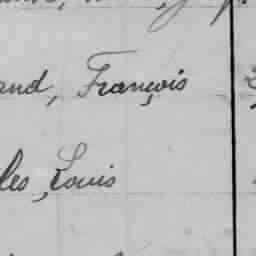 and, François
les, Louis